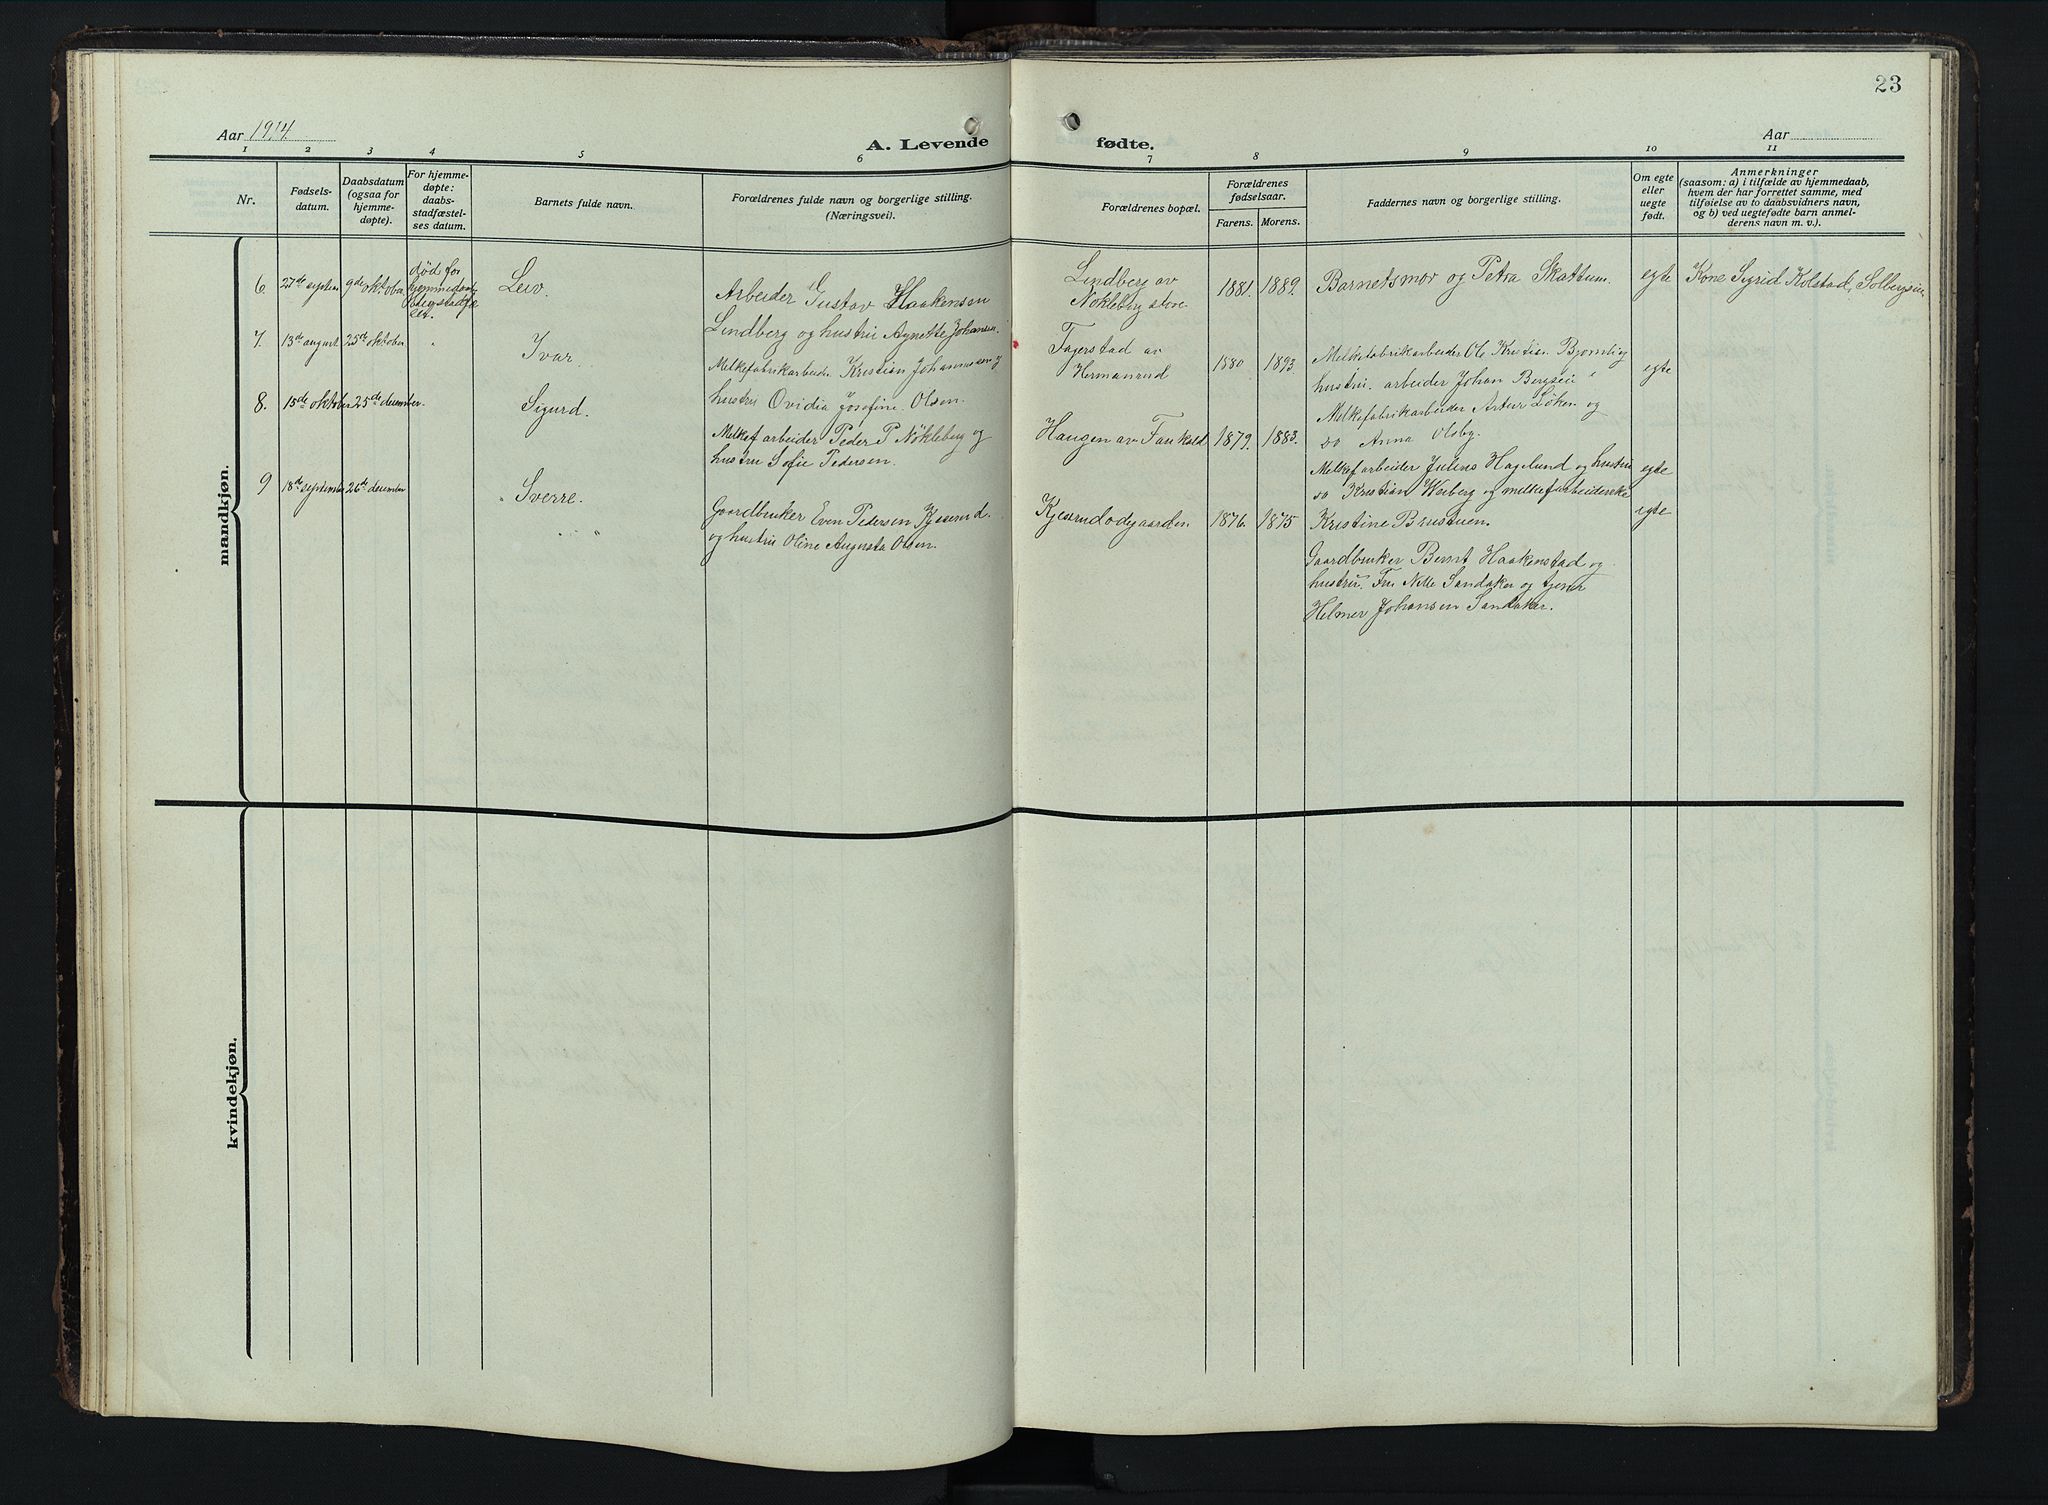 23
Aar 1914
A. Levende fødte.
Aar
1 2 3 4 5 6 7 8 9 10 11
Nr.
Fødsels-
datum.
Daabsdatum
(ogsaa for
hjemme-
døpte).
For hjemme-
døpte:
daabs-
stadfæstel-
ses datum.
Barnets fulde navn.
Forældrenes fulde navn og borgerlige stilling.
(Næringsvei).
Forældrenes bopæl.
Forældrenes
fødselsaar.
Farens. Morens.
Faddernes navn og borgerlige stilling.
Om egte
eller
uegte
født.
Anmerkninger
(saasom: a) i tilfælde av hjemmedaab,
hvem der har forrettet samme, med
tilføielse av to daabsvidners navn,
og b) ved uegtefødte barn anmel-
derens navn m. v.).
mandkjøn.
6 27de septem 9de oktober
død før
Leiv
Arbeider Gustav Haakensen
Lindberg og hustru Agnette Johansen.
Lindberg av
Nökleberg store
1881. 1889.
Barnetsmor og Petra Skattum.
egte
Kone Sigrid Kolstad, Solbergseie
7. 13de august 25de oktober "
Ivar
Melkefabrikarbeider Kristian Johannessen og
hustru Ovidia Josefine Olsen.
Fagerstad av
Hermanrud
1880 1893.
Melkefabrikarbeider Ole Kristian Bjørnby
hustru. arbeider Johan Bergseie
Melkefabrikarbeider Artur Løken og
Anna Olsby.
egte
8. 15de oktober 25de december.
Sigurd.
Melkef arbeider Peder P Nökleberg og
hustru Sofie Pedersen.
Haugen av
1879. 1883.
Melkef arbeider Julius Hagelund og hustru
Kristian Weiberg og melkefarbeiderske
Kristine Brustuen.
egte
9 18de september 26de december
Sverre.
Gaardbruker Even Pedersen Kjeserud
og hustru Oline Augusta Olsen.
Kjeserudodegaarden
1876. 1875
Gaardbruker Bernt Haakenstad og
hustru. Fru Nelle Sandaker og tjener
Helmer Johansen Sandaker.
egte
kvindekjøn.